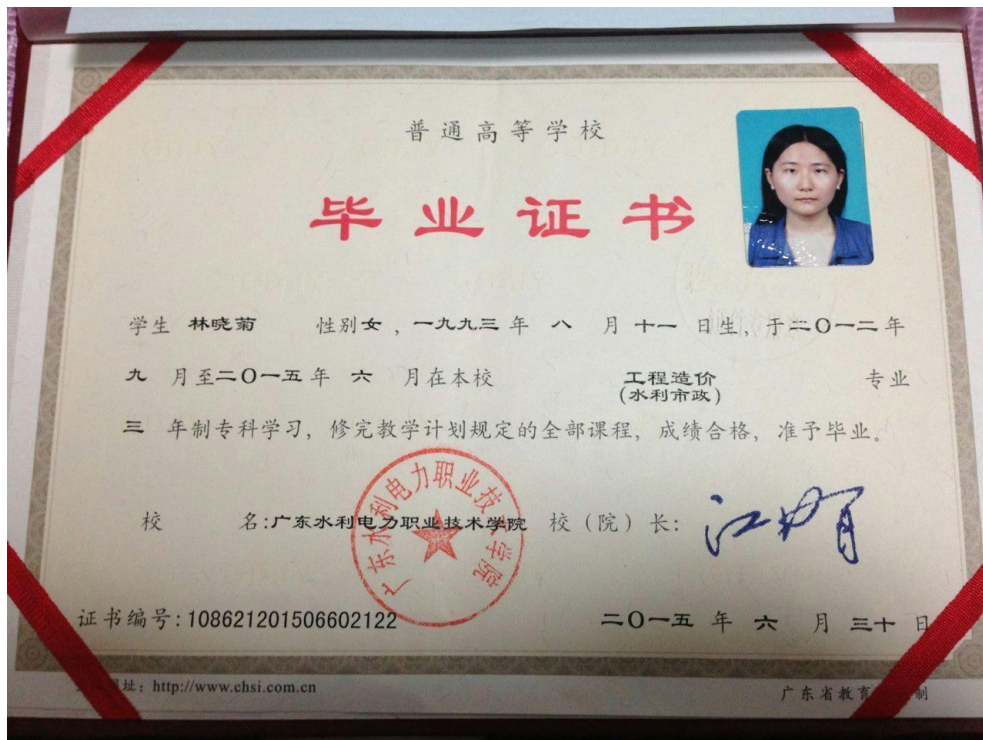 普通高等学校
毕业证书
学生 林晓菊 性别女，一九九三年 八 月十一日生，于二〇一二年
九 月至二〇一五年 六 月在本校 工程造价 专业
(水利市政)
三 年制专科学习，修完教学计划规定的全部课程，成绩合格，准予毕业。
校 名:广东水利电力职业技术学院 校（院）长:
广东水利电力职业技术学院
证书编号:108621201506602122 二〇一五年 六 月 三十 日
网址：http://www.chsi.com.cn 广东省教育 制